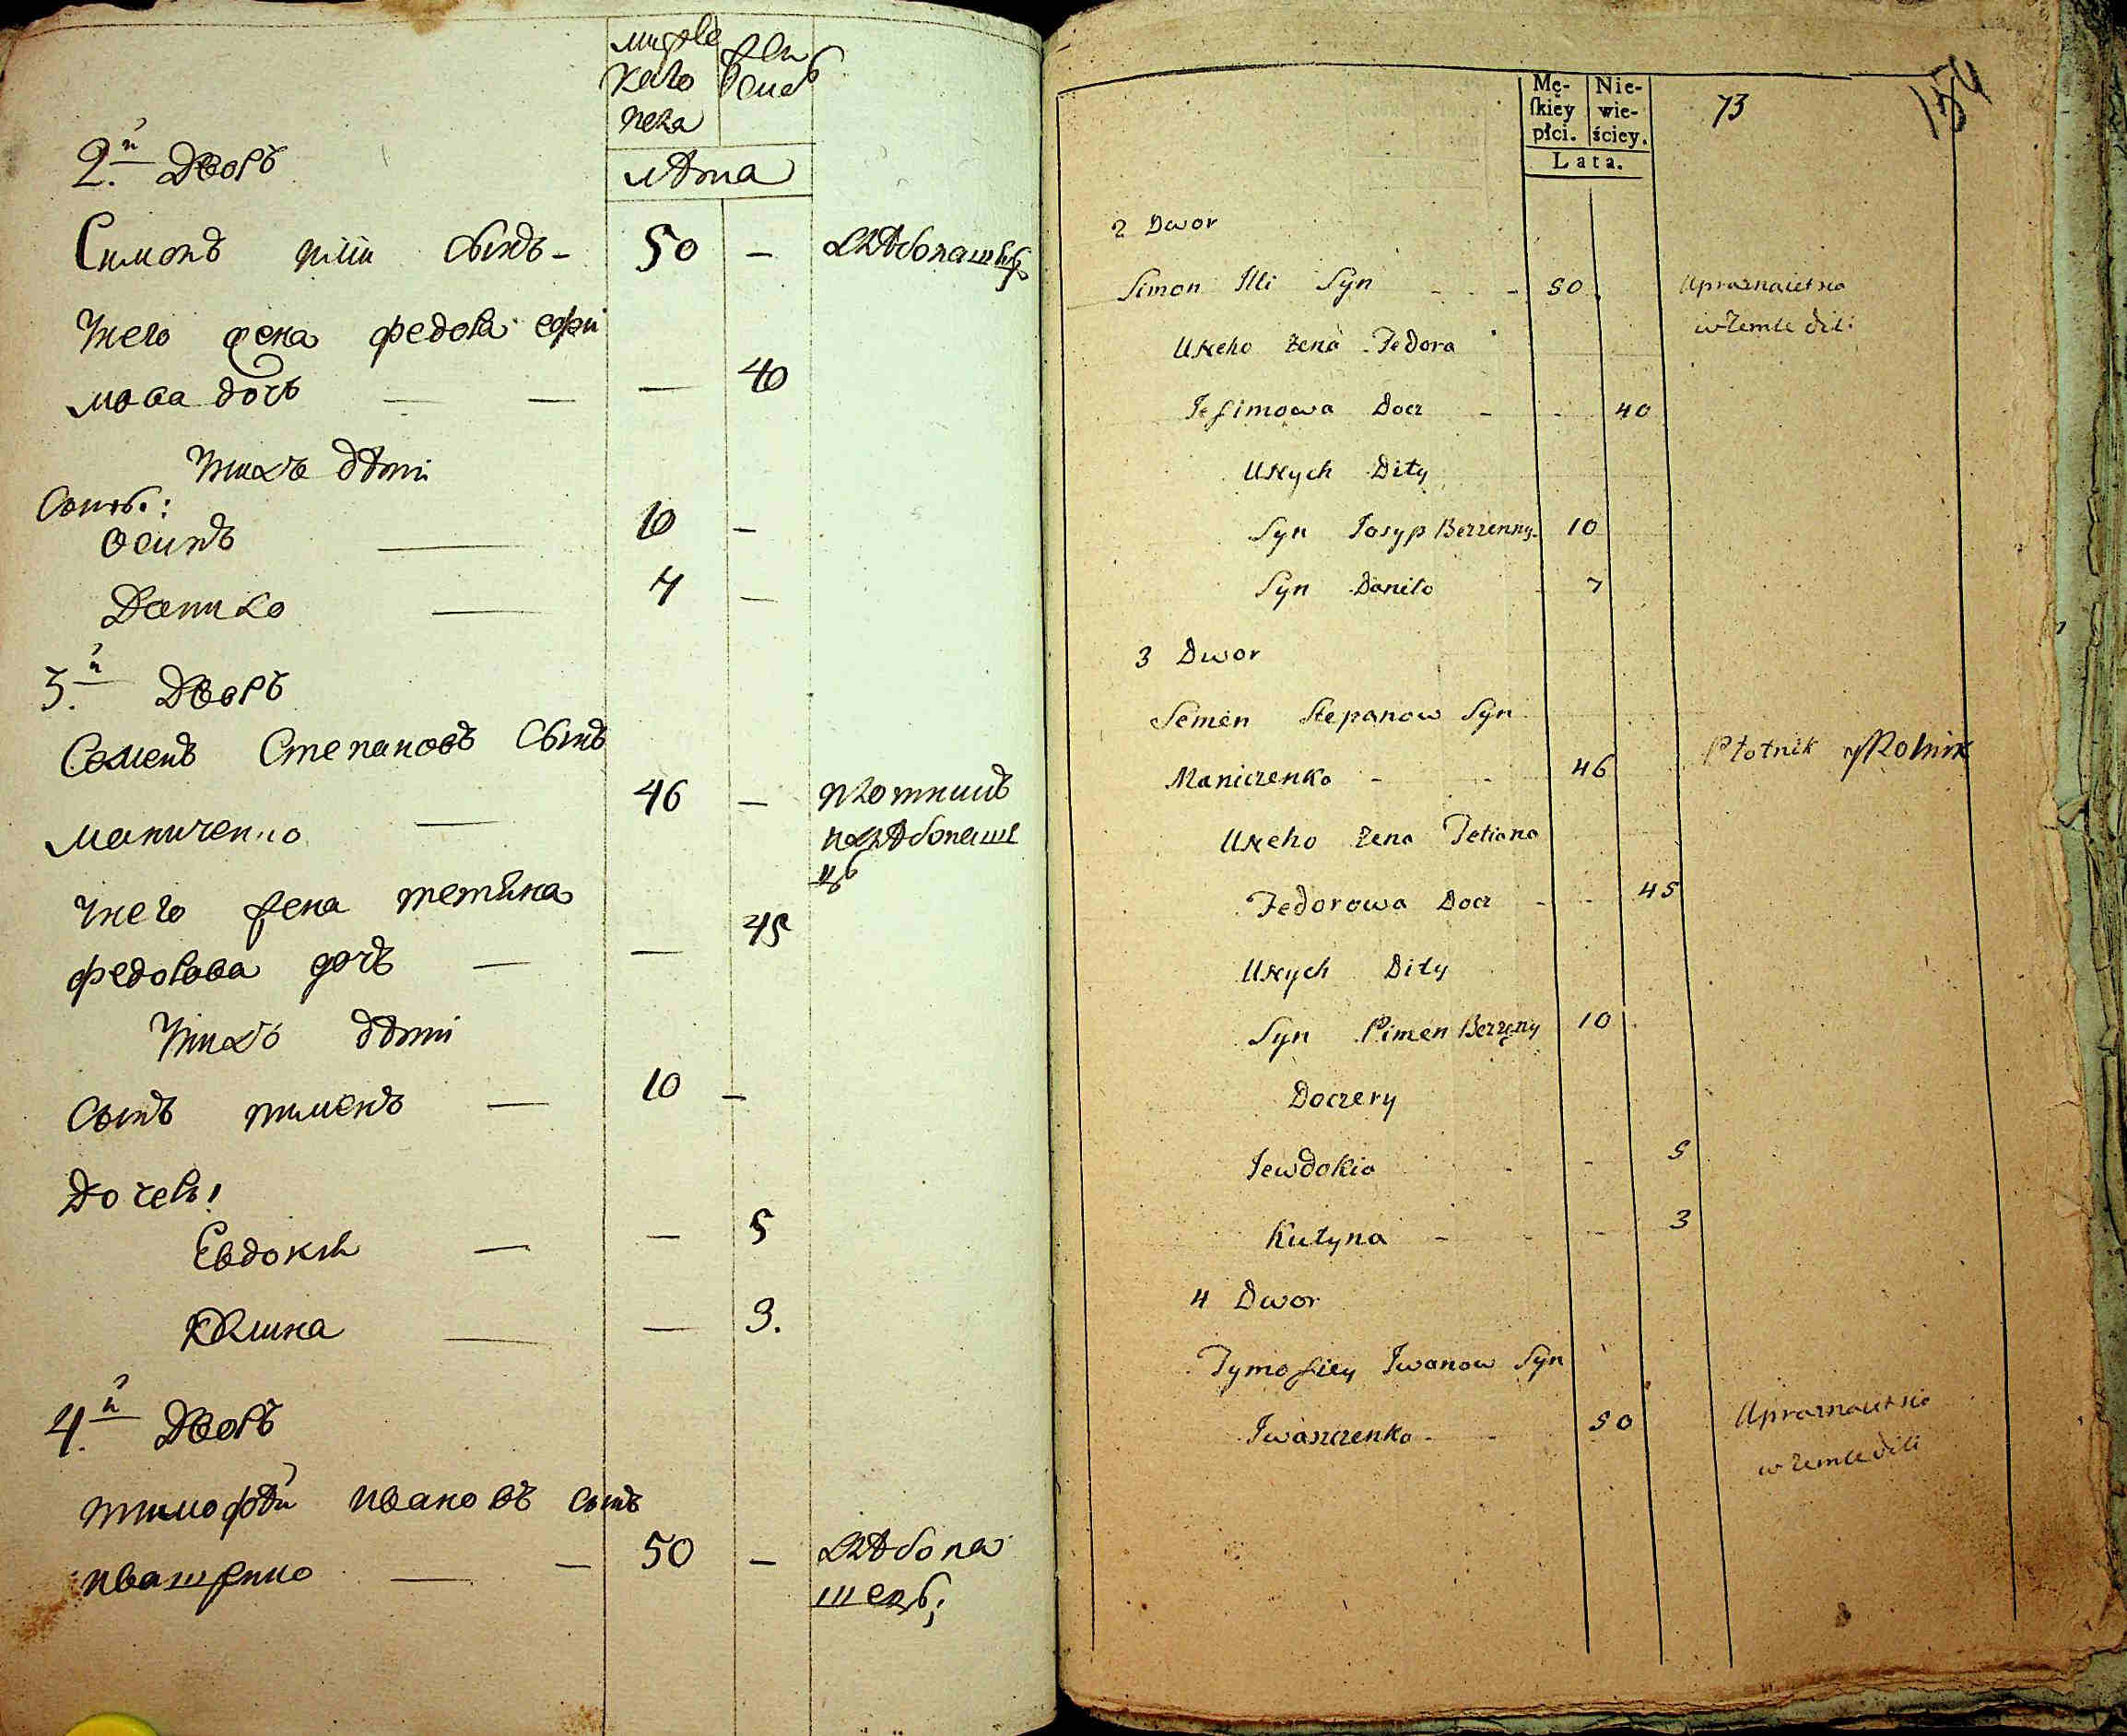 мужеска го пола
жен ска
лѣта
2.й Дворъ
Симонъ иліи сынъ - 50 - хлѣбопашецъ
унего жена федора ефи
мова дочь — — — 40
унихъ дѣти
Сынов.:
осипъ — 10 -
Данило — 7 —
3.й Дворъ
Семенъ Степановъ сынъ
маниченко — 46 — плотникъ
ихлѣбопаше
цъ
унего жена тетяна
федорова дочь — — 45
унихъ дѣти
сынъ пименъ — 10 -
Дочери
Евдокия — — 5
Кулина — — 3.
4.й Дворъ
тимофѣй ивановъ сынъ
иващенко — — 50 — хлѣбопа
шецъ;
Mę-
ſkiey
płci.
Nie-
wie-
ściey.
Lata.
73
2 Dwor
Simon Illi Syn - - - 50 Upraznaietsia
w Zemle dili
Uneho żena Fedora
Jefimowa Docz - - 40
Unych Dity
Syn Josyp Bezzenny 10
Syn Daniło - 7
3 Dwor
Semen Stepanow Syn
Maniczenko - - 46 Płotnik y Rolnik
Uneho żena Tetiana
Fedorowa Docz - - 45
Unych Dity
Syn Pimen Bezzeny 10
Doczery
Jewdokia - - 5
Kułyna - - - 3
4 Dwor
Tymofiey Iwanow Syn
Iwaszczenko - - 50 Upraznaietsia
w Zemledili